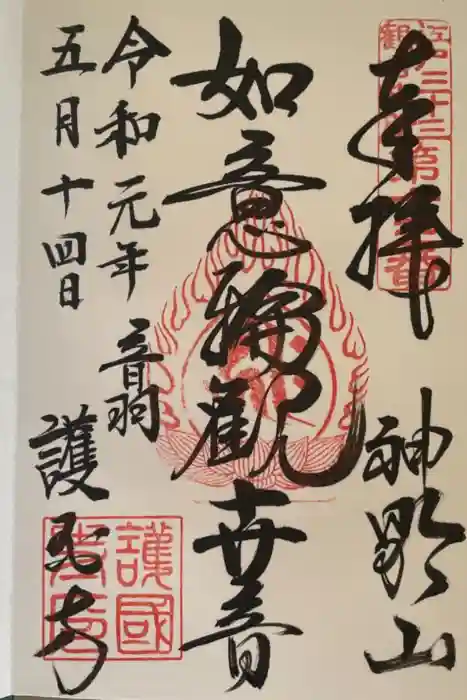 奉拝
神齢山
如意輪観世音
令和元年
五月十四日
音羽
護国寺
護國